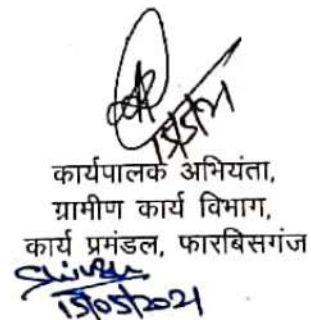 कार्यपालक अभियंता,
ग्रामीण कार्य विभाग,
कार्य प्रमंडल, फारबिसगंज
15/05/2021